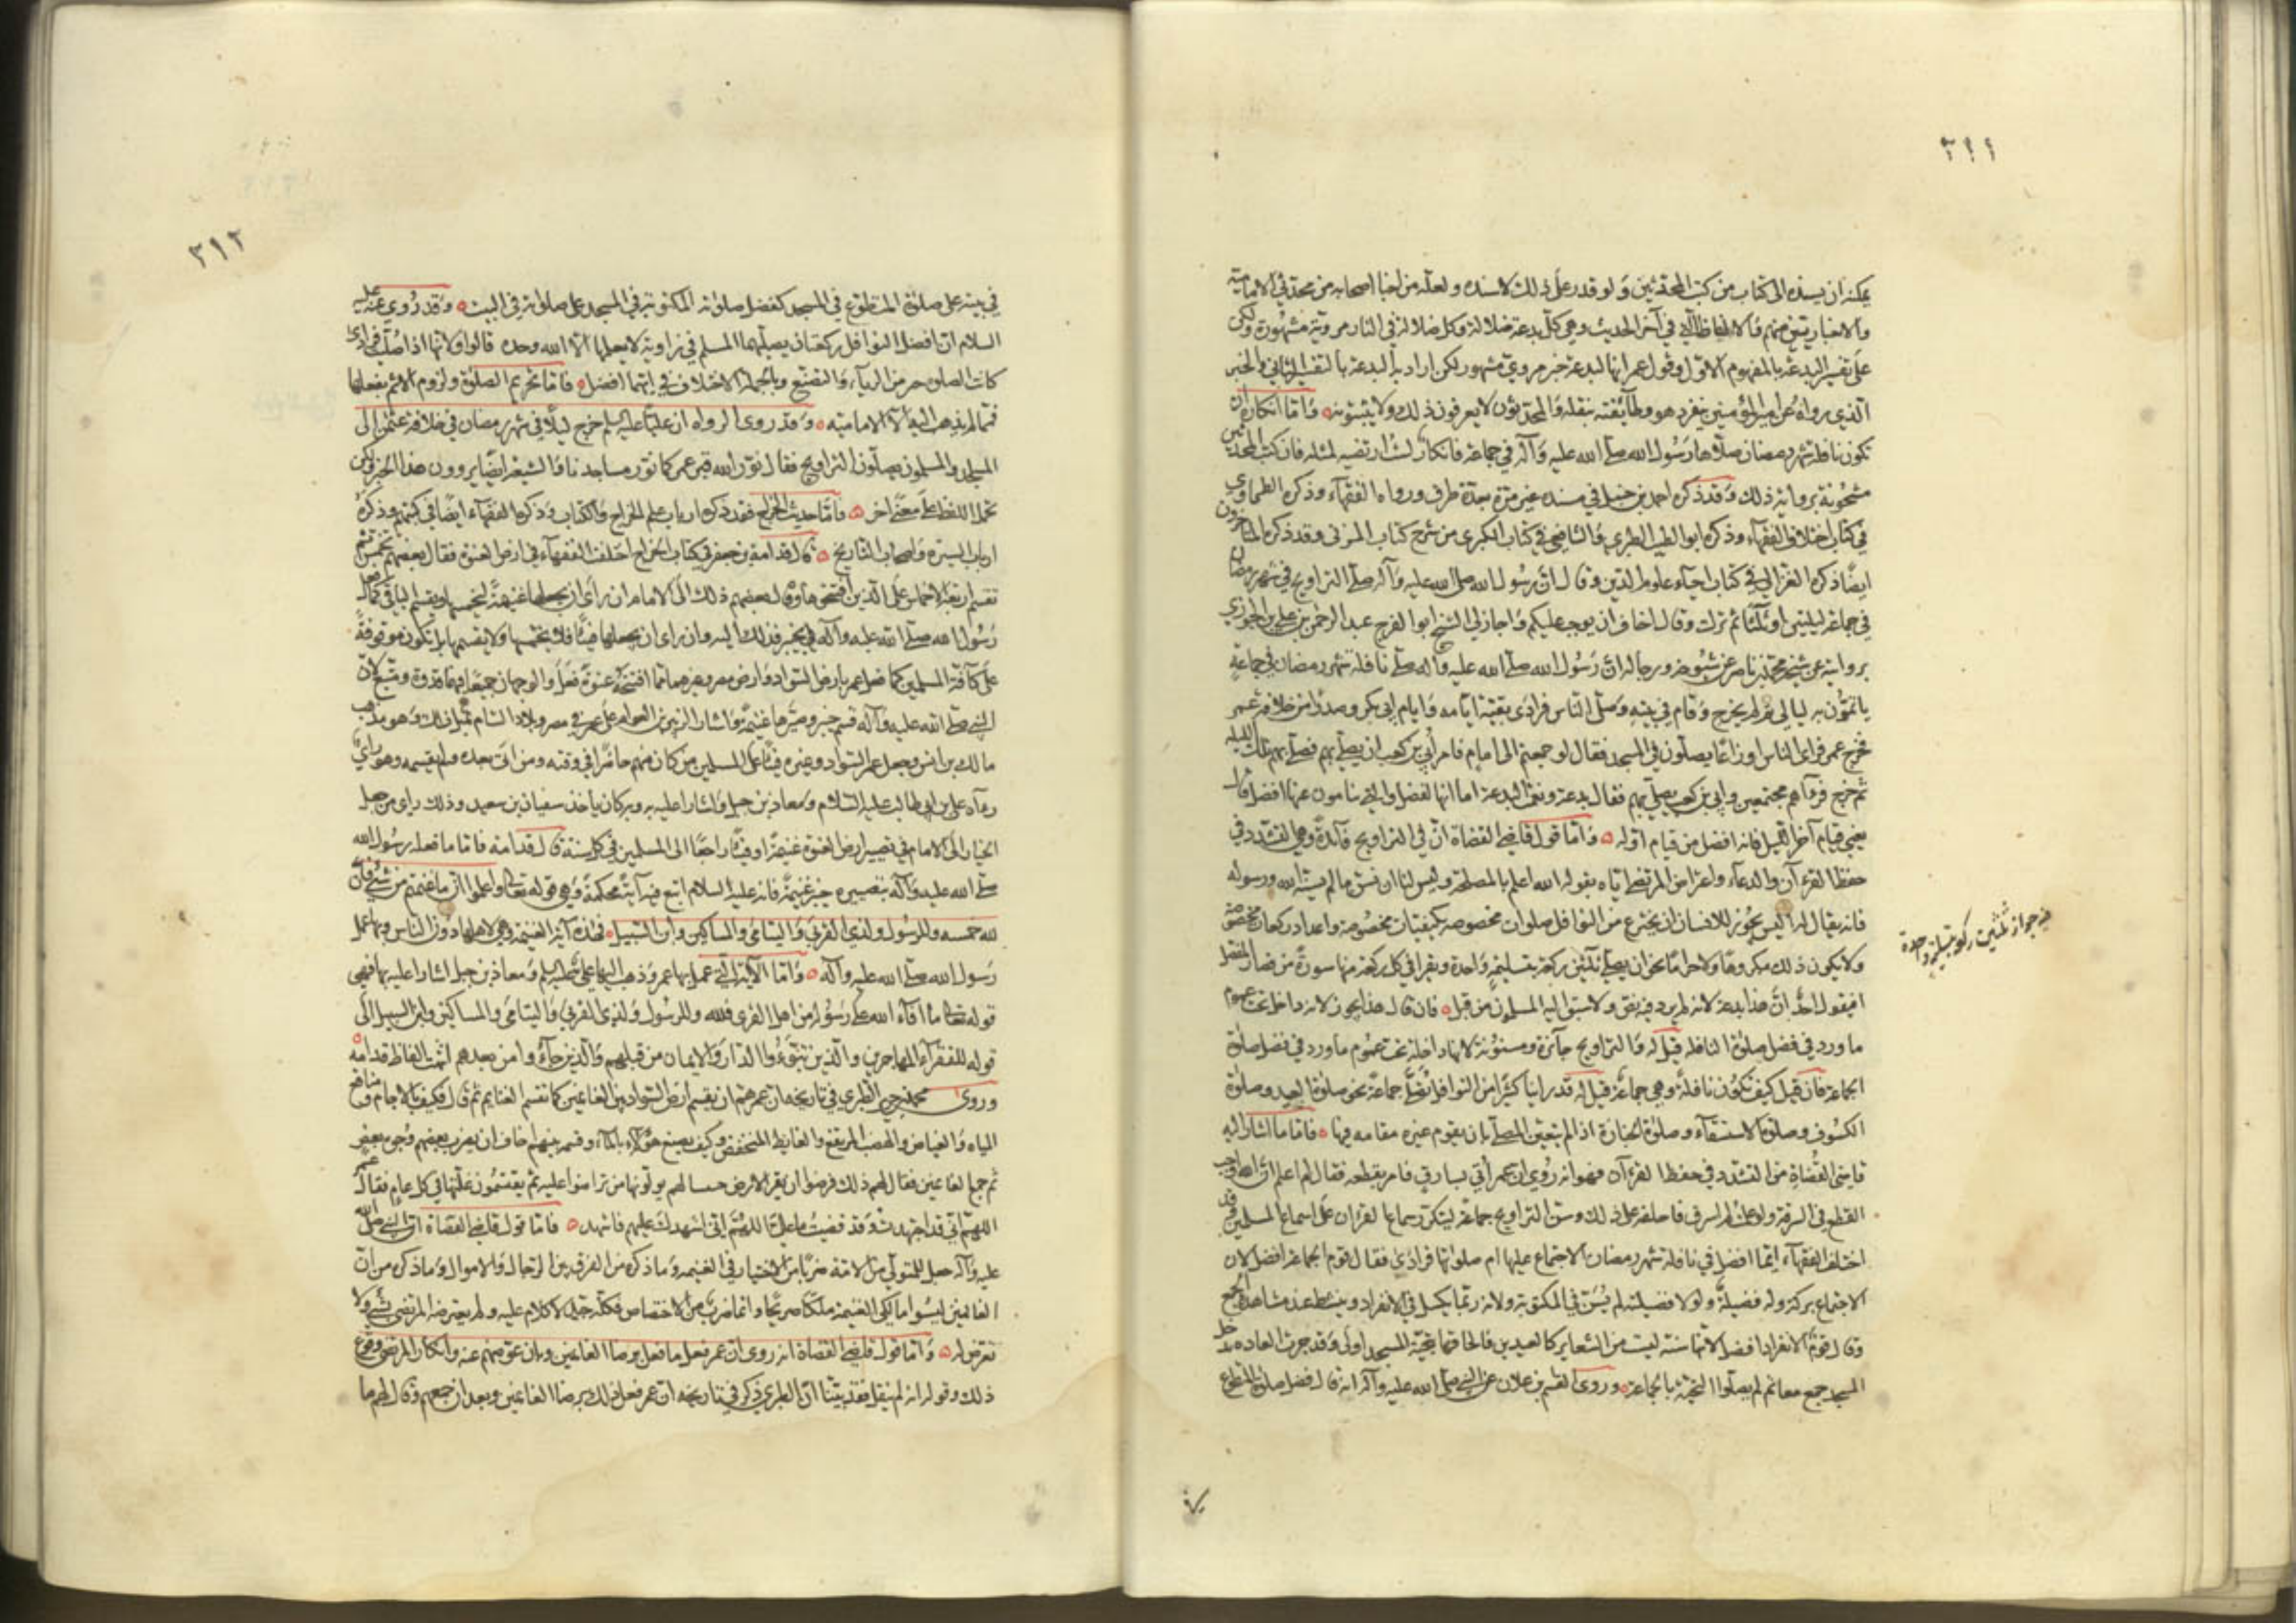 ٣١١
يمكنه ان يسنده الى كتاب من كتب المحدثين ولو قدر على ذلك لاسنده ولعله من اخبار اصحابه من محدثي الامامية
والاخباريين منهم والالفاظ التي في آخر الحديث وهي كل بدعة ضلالة وكل ضلالة في النار مروية مشهورة ولكن
على تفسير البدعة بالمفهوم الاول وقول عمر انها لبدعة خبر مروي مشهور لكن اراد به البدعة بالتفسير الثاني والخبر
الذي رواه عن امير المؤمنين ينفرد هو وطائفته بنقله والمحدثون لا يعرفون ذلك ولا يثبتونه واما انكاره ان
تكون نافلة شهر رمضان صلاها رسول الله صلى الله عليه وآله في جماعة فانكار لست ارتضيه لمثله فان كتب المحدثين
مشحونة برواية ذلك وقد ذكره احمد بن حنبل في مسنده غير مرة بعدة طرق ورواه الفقهاء وذكره الطحاوي
في كتاب اختلاف الفقهاء وذكره ابو الطيب الطبري والشافعي في كتاب الكبرى من شرح كتاب المزني وقد ذكره المتأخرون
ايضا ذكره الغزالي في كتاب احياء علوم الدين وقال ان رسول الله صلى الله عليه وآله صلى التراويح في شهر رمضان
في جماعة ليلتين او ثلثا ثم ترك وقال اخاف ان يوجب عليكم واجاز لي الشيخ ابو الفرج عبد الرحمن بن علي بن الجوزي
بروايته عن شيخه محمد بن ناصر عن شيوخه ورجاله ان رسول الله صلى الله عليه وآله صلى نافلة شهر رمضان في جماعة
يأتمون به ليالي ثم لم يخرج وقام في بيته وصلى الناس فرادى بقية ايامه وايام ابي بكر وصدرا من خلافة عمر
فخرج عمر فراى الناس اوزاعا يصلون في المسجد فقال لو جمعتهم الى امام فامر ابي بن كعب ان يصلي بهم فصلى بهم تلك الليله
ثم خرج فرآهم مجتمعين وابي بن كعب يصلي بهم فقال بدعة ونعمت البدعة اما انها لفضل والتي ينامون عنها افضل قال
يعني قيام آخر الليل فانه افضل من قيام اوله واما قول قاضي القضاة ان في التراويح فائدة وهي التشدد في
حفظ القرءآن والدعاء واعتراض المرتضى اياه بقوله الله اعلم بالمصلحة وليس لنا ان نسن ما لم يسنه الله ورسوله
فانه يقال له اليس يجوز للانسان ان يخترع من النوافل صلوات مخصوصه بكيفيات مخصوصة واعداد ركعات مخصوصة
ولا يكون ذلك مكروها ولا حراما نحو ان يصلي ثلثين ركعة بتسليمة واحدة ويقرا في كل ركعة منها سورة من قصار المفصل
افيقول احد ان هذا بدعة لانه لم يرد فيه نص ولا سبق اليه المسلمون من قبل فان قال هذا يجوز لانه داخل تحت عموم
ما ورد في فضل صلوة النافله قيل له والتراويح جائزة ومسنونة لانها داخلة تحت عموم ما ورد في فضل صلوة
الجماعة فان قيل كيف تكون نافلة وهي جماعة قيل له قد راينا كثيرا من النوافل تصلى جماعة نحو صلوة العيد وصلوة
الكسوف وصلوة الاستسقاء وصلوة الجنازة اذا لم يتعين المصلي بان يقوم غيره مقامه فيها فاما ما اشار اليه
قاضي القضاة من التشدد في حفظ القرءآن فهو انه روي ان عمر اتي بسارق فامر بقطعه فقال لم اعلم ان الله اوجب
القطع في السرقة ولو علمت لم اسرق فاحلفه على ذلك وسن التراويح جماعة ليتكرر سماع القرءان على اسماع المسلمين وقد
اختلف الفقهاء ايما افضل في نافلة شهر رمضان الاجتماع عليها ام صلوتها فرادى فقال قوم الجماعة افضل لان
الاجتماع بركة وله فضيلة ولولا فضيلته لم يسن في المكتوبة ولانه ربما يكسل في الانفراد وينشط عند مشاهدة الجمع
وقال قوم الانفراد افضل لانها سنة ليست من الشعاير كالعيدين فالحاقها بتحية المسجد اولى وقد جرت العاده بدخول
المسجد جمع معا ثم لم يصلوا التحية بالجماعة وروى القسم بن علان عن النبي صلى الله عليه وآله انه قال فضل صلوة المتطوع
في جواز ثلثين ركعة بتسليمة واحدة
٣١٢
في بيته على صلوة المتطوع في المسجد كفضل صلوته المكتوبة في المسجد على صلوته في البيت وقد روي عنه عليه
السلام ان افضل النوافل ركعتان يصليهما المسلم في زاوية لا يعلمها الا الله وحده قالوا ولانها اذا صليت فرادى
كانت الصلوة حرز من الرياء والتصنع وبالجملة الاختلاف في ايتهما افضل فاما تحريم الصلوة ولزوم الاثم بفعلها
فمما لم يذهب اليه الا الامامية وقد روى الرواه ان عليا عليه السلم خرج ليلا في شهر رمضان في خلافة عثمن الى
المسجد والمسلمون يصلون التراويح فقال نور الله قبر عمر كما نور مساجدنا والشيعة ايضا يروون هذا الخبر ولكن
تحمل اللفظ على معنى اخر فاما حديث الخراج فقد ذكره ارباب علم الخراج والكتاب وذكره الفقهاء ايضا في كتبهم وذكره
ارباب السيرة واصحاب التاريخ قال قدامة بن جعفر في كتاب الخراج اختلف الفقهاء في ارض العنوة فقال بعضهم تخمس ثم
تقسم اربعة الاخماس على الذين افتتحوها وقال بعضهم ذلك الى الامام ان رأى ان يجعلها غنيمة ليخمسها ويقسم الباقي كما فعل
رسول الله صلى الله عليه وآله في خيبر فذلك اليه وان راى ان يجعلها فيئا فلا يخمسها ولا يقسمها بل تكون موقوفة
على كافة المسلمين كما فعل عمر بارض السواد وارض مصر وغيرهما مما افتتحه عنوة فعلى الوجهان جميعا فيهما قدوة ومتبع لان
النبي صلى الله عليه وآله قسم خيبر وصيرها غنيمة واشار الزبير بن العوام على عمر في مصر وبلاد الشام بمثل ذلك وهو مذهب
مالك بن انس وجعل عمر السواد وغيره فيئا على المسلمين من كان منهم حاضرا في وقته ومن اتى بعده ولم يقسمه وهو رأي
رءآه علي بن ابي طالب عليه السلام ومعاذ بن جبل واشارا عليه به وبه كان ياخذ سفيان بن سعيد وذلك راي من جعل
الخيار الى الامام في تصيير ارض العنوة غنيمة او فيئا راجعا الى المسلمين في كل سنة قال قدامة فاما ما فعله رسول الله
صلى الله عليه وآله بتصييره خيبر غنيمة فانه عليه السلام اتبع فيه آية محكمة وهي قوله تعالى واعلموا ان ما غنمتم من شيء فان
لله خمسه وللرسول ولذي القربى واليتامى والمساكين وابن السبيل فهذه آية الغنيمة وهي لاهلها دون الناس وبها عمل
رسول الله صلى الله عليه وآله واما الآية التي عمل بها عمر وذهب اليها علي عليه السلم ومعاذ بن جبل اشارا عليه بها فهي
قوله تعالى ما افاء الله على رسوله من اهل القرى فلله وللرسول ولذي القربى واليتامى والمساكين وابن السبيل الى
قوله للفقراء المهاجرين والذين تبوءوا الدار والايمان من قبلهم والذين جاءوا من بعدهم انتهت الفاظ قدامة
وروى محمد بن جرير الطبري في تاريخه ان عمر هم ان يقسم ارض السواد بين الغانمين كما تقسم الغنايم ثم قال فكيف بالآجام ومناقع
المياه والغياض والهضب المرتفع والغايط المنخفض وكيف يصنع هؤلاء بالماء وقسمه بينهم اخاف ان يضرب بعضهم وجوه بعض
ثم جمع الغانمين فقال لهم ذلك فرضوا ان يقر الارض حبسا لهم يولونها من تراضوا عليه ثم يقتسمون غلتها في كل عام فقال عمر
اللهم اني قد اجتهدت وقد قضيت ما علي اللهم اني اشهدك عليهم فاشهد فاما قول قاضي القضاة ان النبي صلى الله
عليه وآله جعل للمتولي من الامة ضربا من الاختيار في الغنيمه وما ذكره من الفرق بين الرجال والاموال وما ذكره من ان
الغانمين ليسوا مالكي الغنيمة ملكا صريحا وانما ضرب من الاختصاص فكله جيد لا كلام عليه ولم يعترضه المرتضى بشيء ولا
تعرض له واما قول قاضي القضاة انه روى ان عمر فعل ما فعل برضا الغانمين وبان عوضهم عنه وانكار المرتضى وقوع
ذلك وقوله انه لم ينقل فقد بينا ان الطبري ذكر في تاريخه ان عمر فعل ذلك برضا الغانمين وبعد ان جمعهم وقال لهم ما